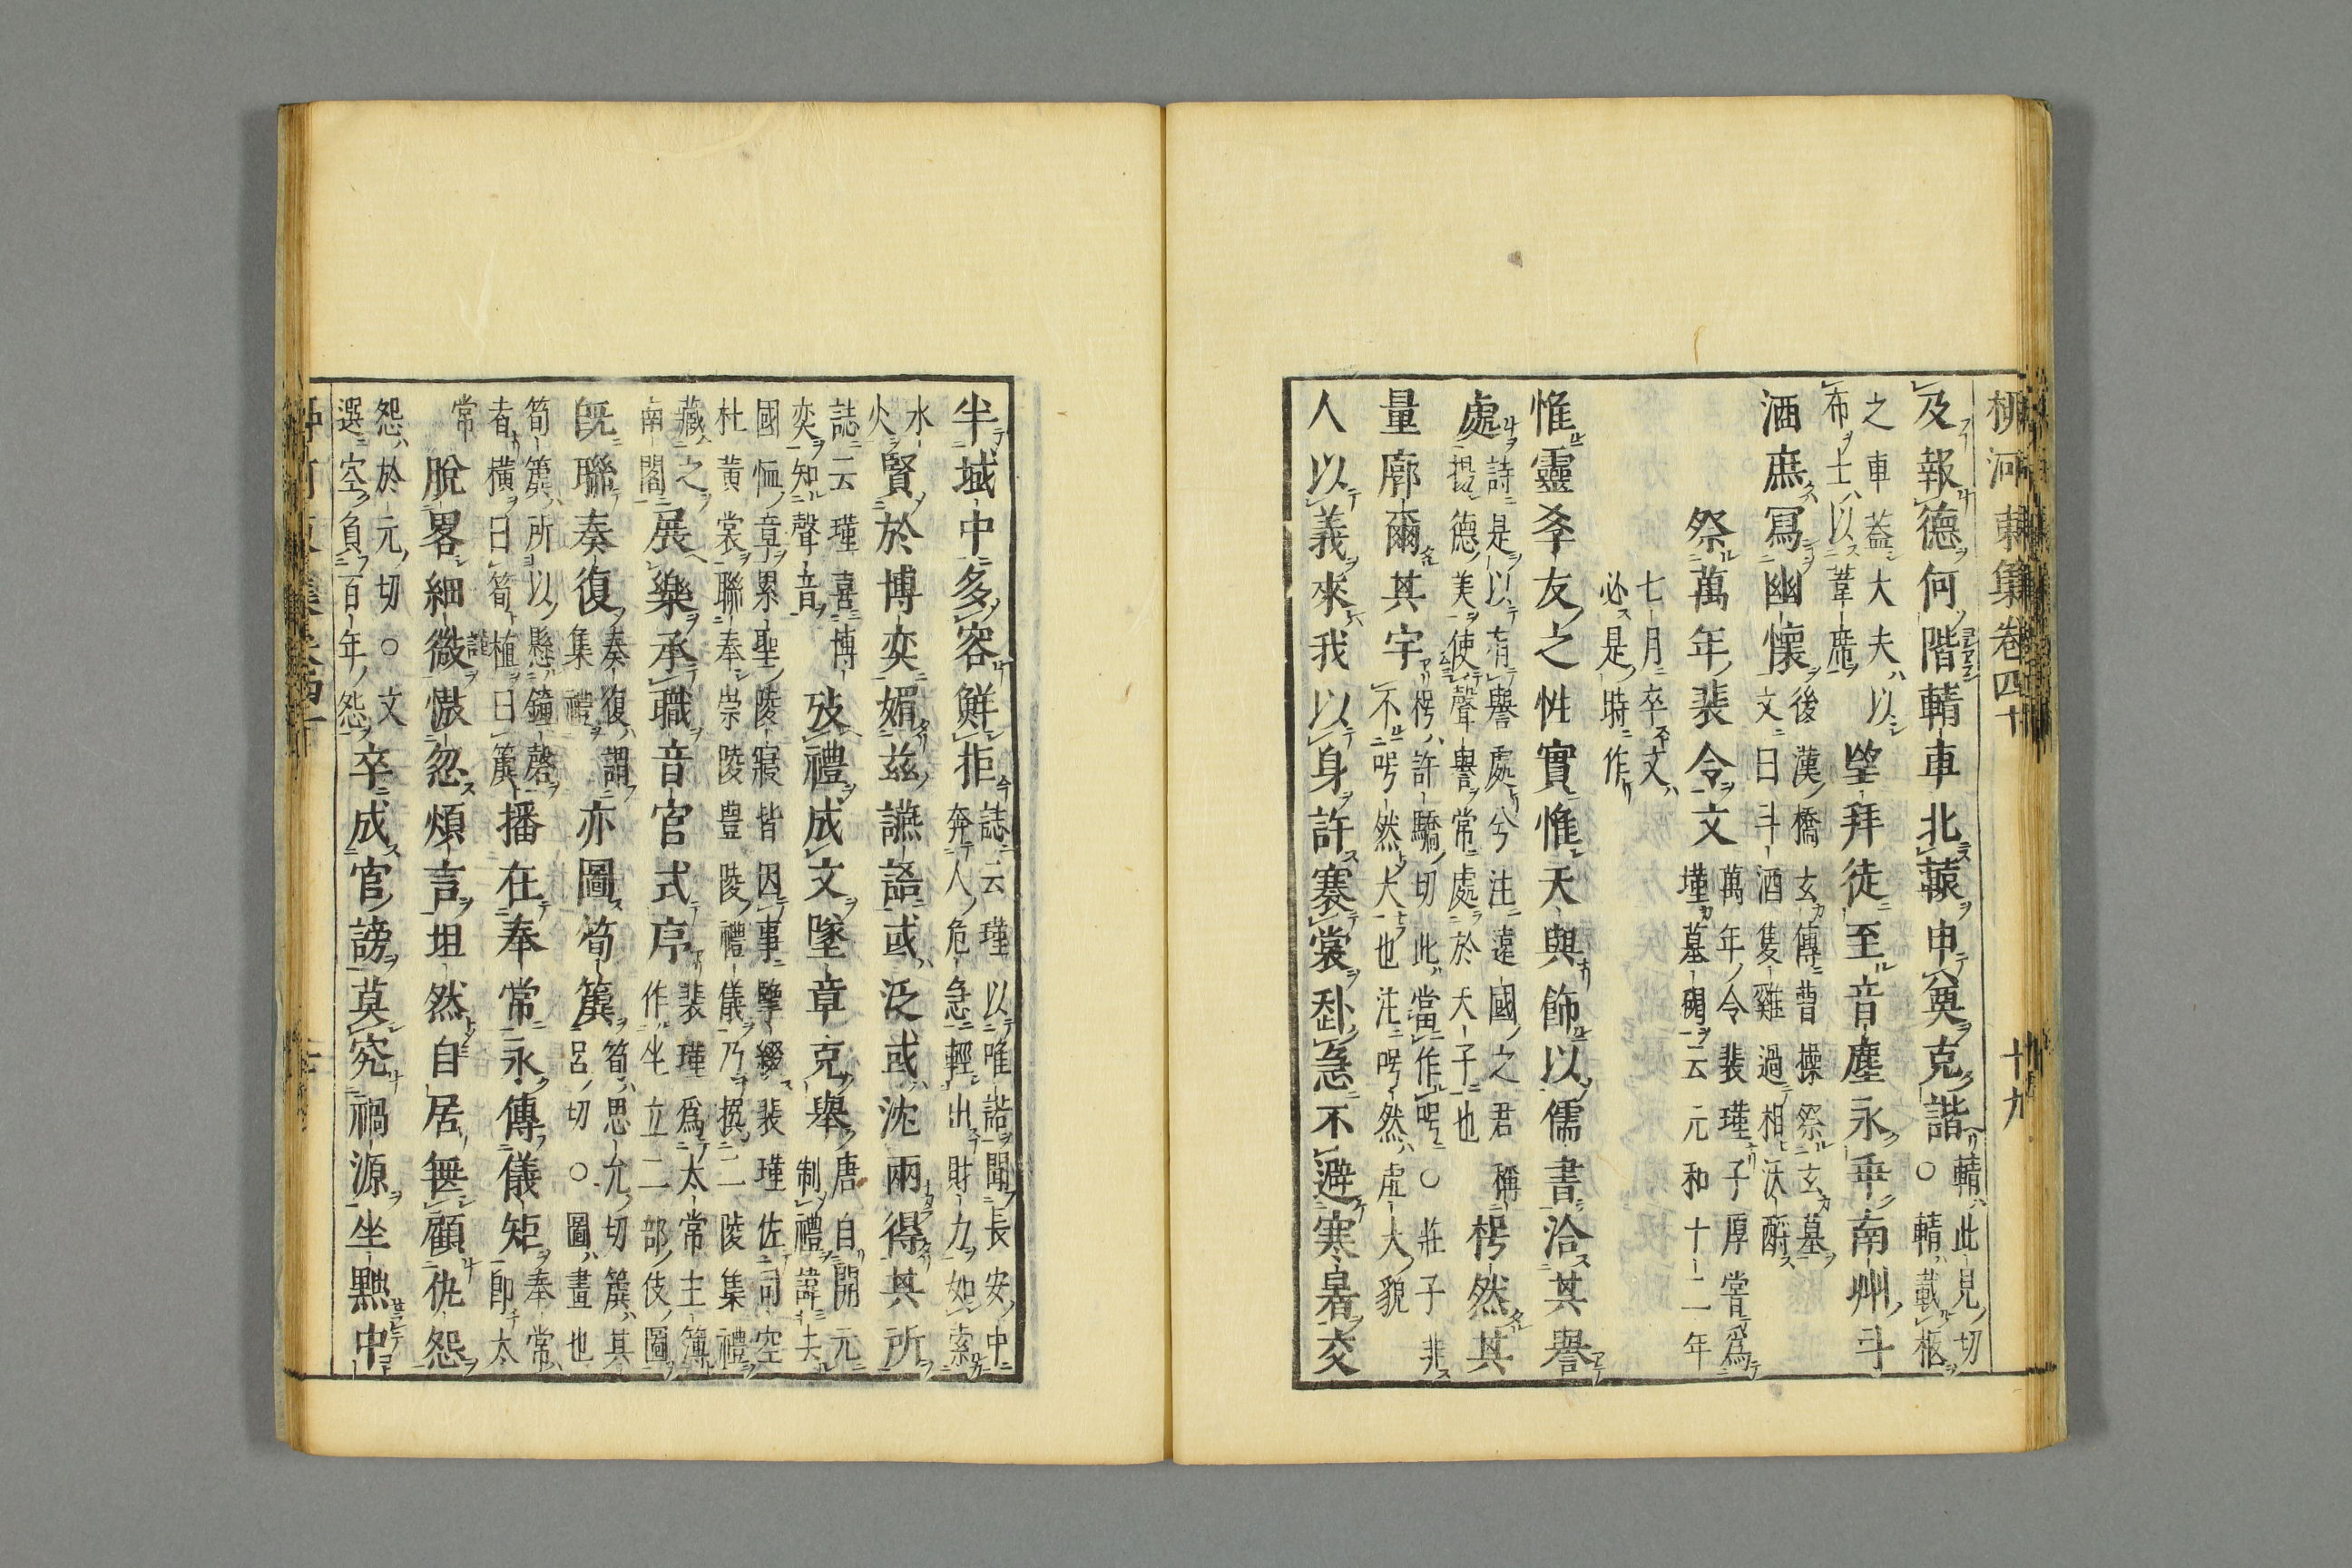 柳河東集卷四十 十九
及報德何階輤車北轅申奠克諧輤此見切○輤載柩
之車蓋大夫以布士以葦席望拜徒至音塵永乖南州斗
酒庶寫幽懷後漢橋玄傳曹操祭玄墓文曰斗酒隻雞過相沃酹
祭萬年裴令文萬年令裴瑾子厚嘗爲瑾墓碣云元和十二年
七月卒文必是時作
惟靈孝友之性實惟天與飾以儒書洽其譽
處詩是以有譽處兮注遠國之君稱揚德美使聲譽常處於天子也枵然其
量廓爾其宇枵許驕切此當作呺○莊子非不呺然大也注呺然虛大貌
人以義來我以身許褰裳赴急不避寒暑交
半域中多容鮮拒今誌云瑾以唯諾聞長安中奔人危急輕出財力如索
水火賢於博奕媚茲讌語或泛或沈兩得其所
誌云瑾喜博奕知聲音攷禮成文墜章克舉唐自開元制禮諱去
國恤章累聖陵寢皆因事擊綴裴瑾佐司空杜黃裳聯奉崇陵豊陵禮儀乃撰二陵集禮
藏之南閣展樂承職音官式序裴瑾爲太常主簿作坐立二部伎圖
既聯奏復奏復謂集禮亦圖筍簴筍思允切簴其呂切○圖畫也
筍簴所以懸鐘磬者横曰筍植曰簴播在奉常永傳儀矩奉常卽太
常脫畧細微慠忽煩言坦然自居無顧仇怨
怨於元切○文選空負百年怨卒成官謗莫究禍源坐黜中